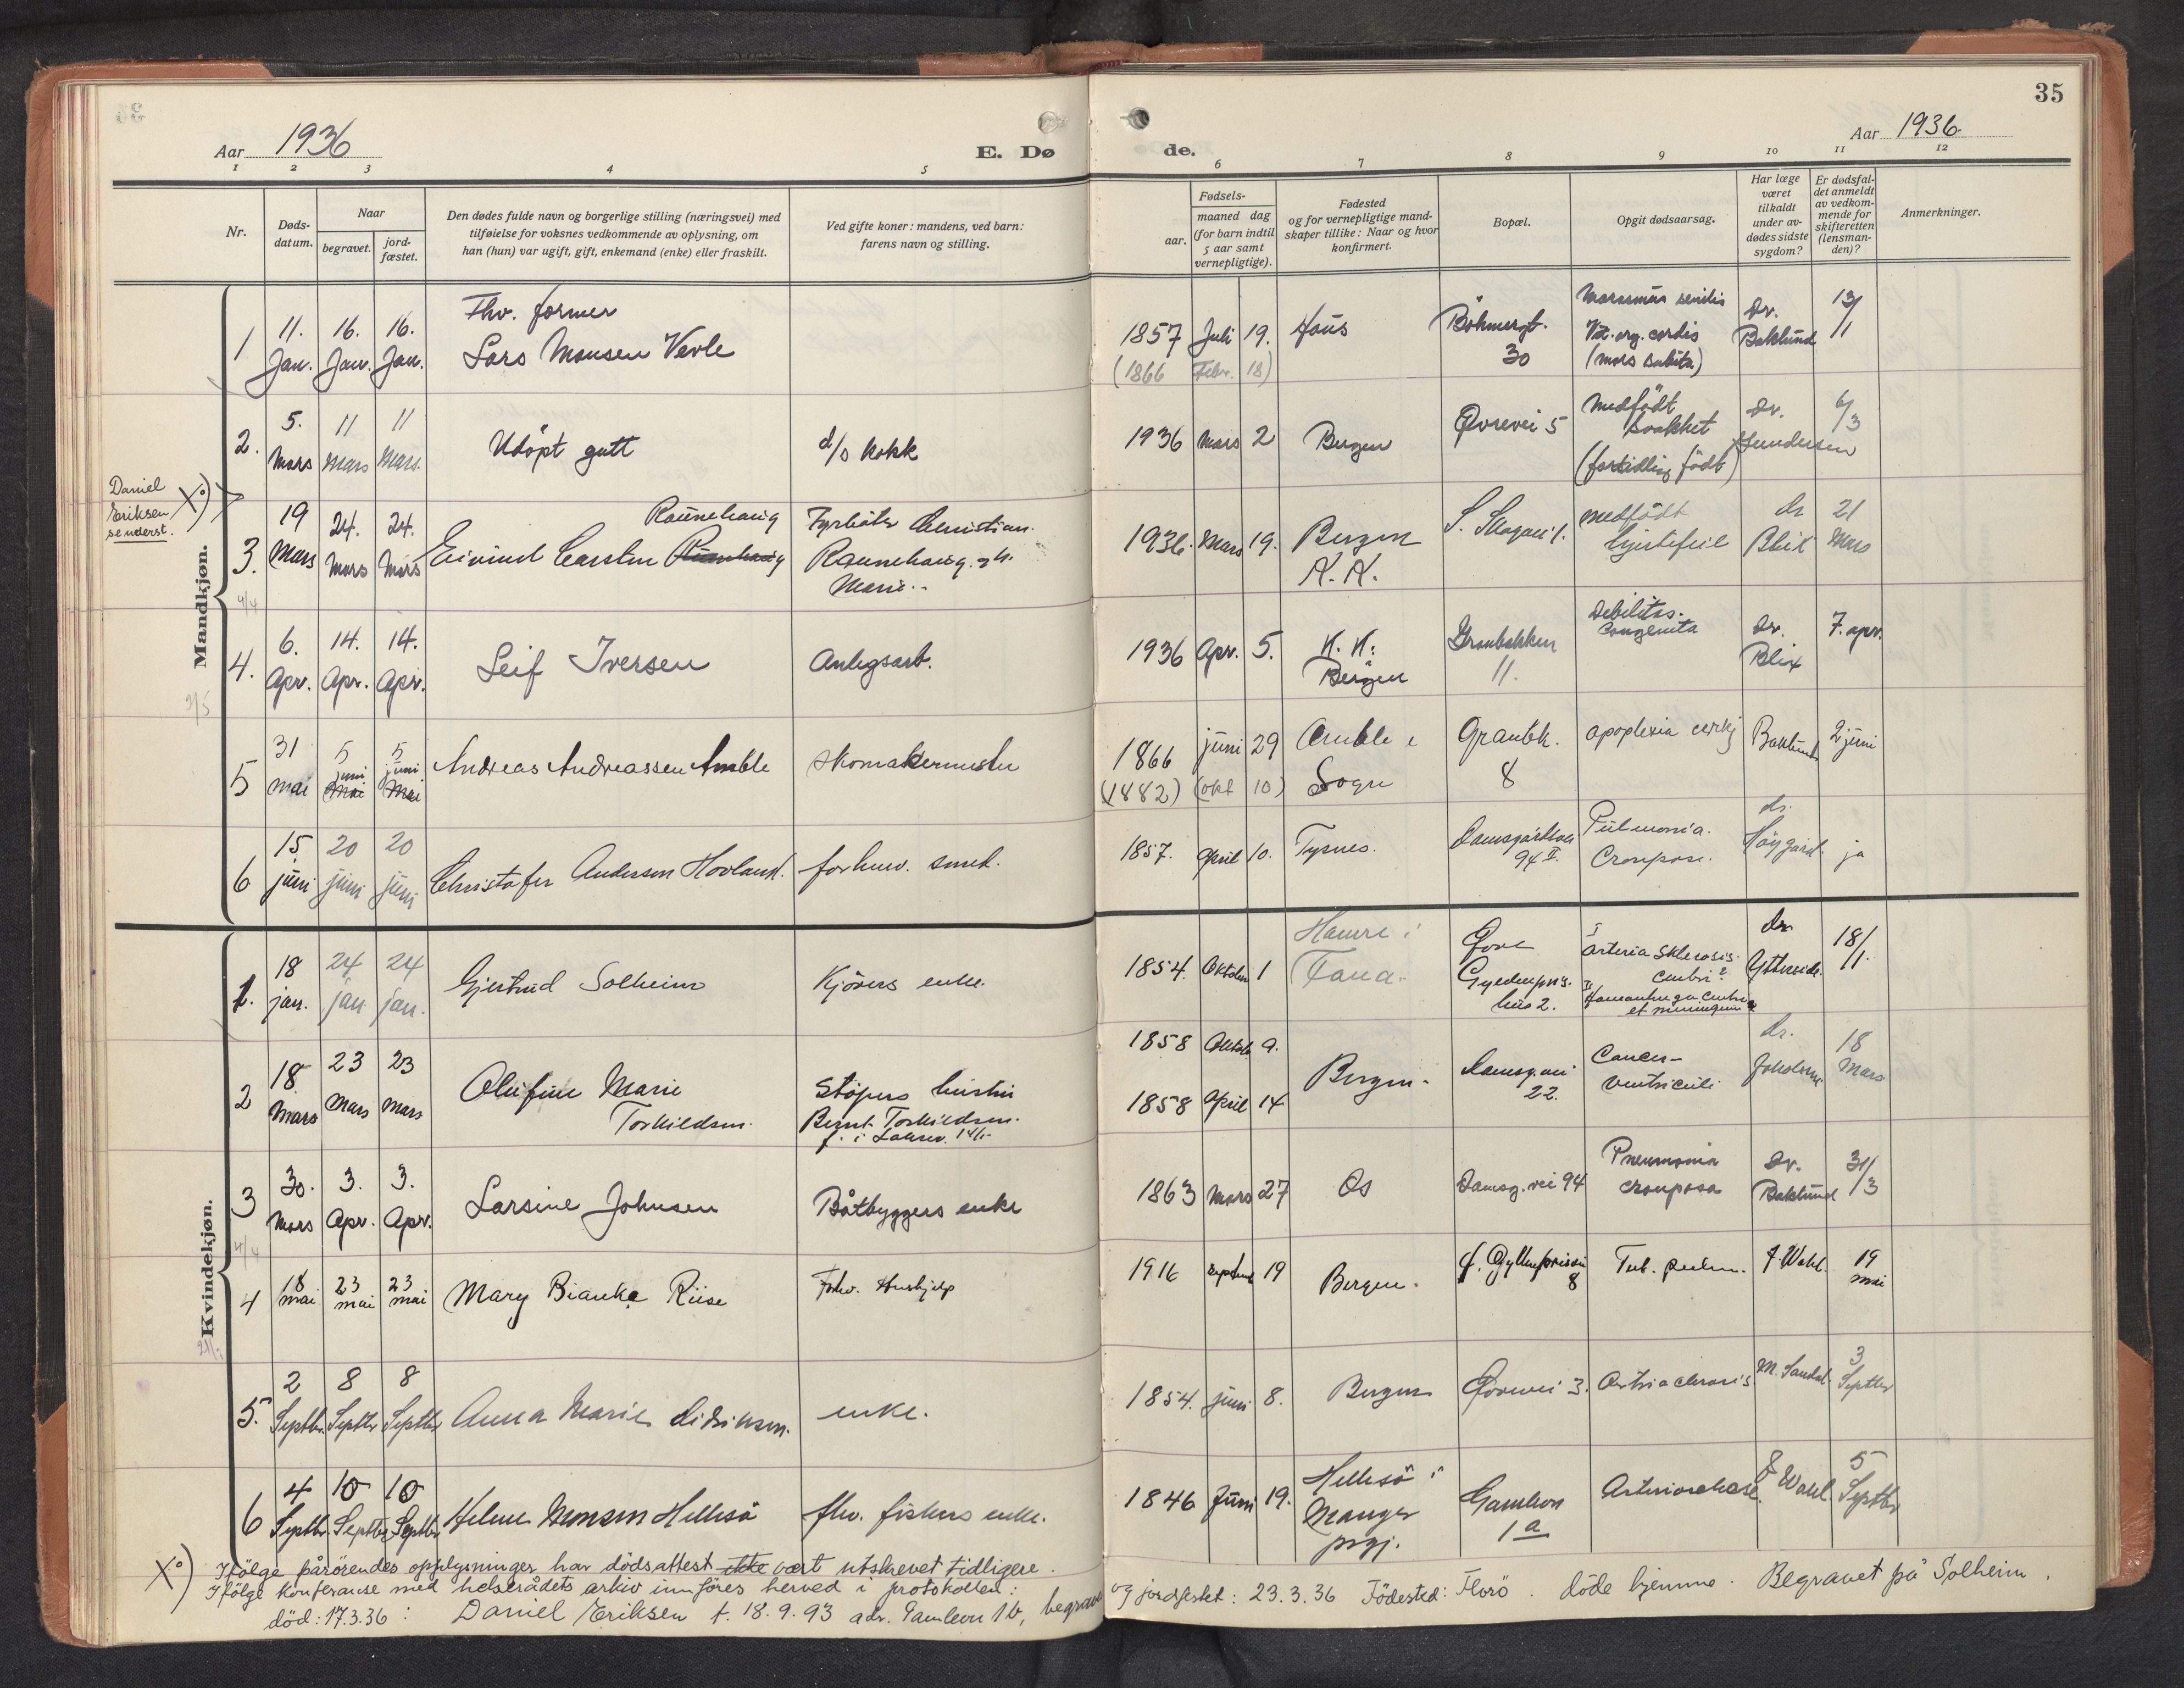 35
Aar 1936
E. Dø
de.
Aar 1936
1 2 3 4 5 6 7 8 9 10 11 12
Nr.
Døds-
datum.
Naar
begravet.
jord-
fæstet.
Den dødes fulde navn og borgerlige stilling (næringsvei) med
tilføielse for voksnes vedkommende av oplysning, om
han (hun) var ugift, gift, enkemand (enke) eller fraskilt.
Ved gifte koner: mandens, ved barn:
farens navn og stilling.
Fødsels-
aar.
maaned dag
(for barn indtil
5 aar samt
vernepligtige).
Fødested
og for vernepligtige mand-
skaper tillike: Naar og hvor
konfirmert.
Bopæl.
Opgit dødsaarsag.
Har læge
været
tilkaldt
under av-
dødes sidste
sygdom?
Er dødsfal-
det anmeldt
av vedkom-
mende for
skifteretten
(lensman-
den)?
Anmerkninger.
Mandkjøn.
1 11. Jan. 16. Jan. 16. Jan. Fhv. former
Lars Monsen Verle
1857 Juli 19. Haus Böhmergt. 30 Marasmus senilis (mors subita) Dr. Baklund 13/1
(1866 Febr. 18)
2. 5. Mars 11 Mars 11 Mars. Udöpt gutt d/s kokk
1936 Mars 2 Bergen Øvrevei 5 Medfödt svakhet (fortidlig födt) Dr. Gundersen 6/3
Daniel
Eriksen
se nederst.
X°)
3. 19 Mars 24. Mars 24. Mars Eivind Carsten Raunehaug
Fyrböter Christian
Raunehaug
Marie
1936. Mars 19. Bergen K.K. medfödt hjertefeil dr Blix 21 Mars
4/4
4. 6. Apr. 14. Apr. 14. Apr. Leif Iversen Anlegsarb.
1936 Apr. 5. K.K. Bergen Granbakken 11. Debilitas Congenita Dr. Blix 7. apr.
2/5
5 31 mai 5 juni mai 5 juni mai Andreas Andreassen Amble skomakermester
1866 juni 29 Amble i Sogn Granbk. 8 apoplexia Baklund 2 juni
(1882) (okt 10)
6 15 juni 20 juni 20 juni Christofer Andersen Hovland. forhenv. smed.
1857. April 10. Tysnes. Damsgårdsvei 94 II. Pulmonia Croupose. dr. Höygård. ja
Kvindekjøn.
1. 18 jan. 24 jan 24 jan. Gjertrud Solheim Kjörers enke.
1854. Oktober 1 Hamre i Fana. 2. Arteria Sklerosis dr. 18/1
2 18 Mars 23 Mars 23 Mars Olufine Marie
Torkildsen.
Stöpers hustru
Bernt Torkildsen.
1858 Oktob 9.
1858 April 14 Bergen. Damsg.vei 22. Cancer ventriculi dr. 18 Mars
3 30. Mars 3. Apr. 3. Apr. Larsine Johnsen Båtbyggers enke
1863 Mars 27 Os Damsg. vei 94 Pneumonia crouposa Dr. Baklund 31/3
4/4
4 18 mai 23 mai 23 mai Mary Bianka Riise Fhv. Hushjelp
1916 septemb 19 Bergen. 8 Tub. pulm. Wahl. 19 mai
5. 2 Septbr. 8 Septbr 8 Septbr Anna Marie Didriksen. enke.
1854. juni 8. Bergen Øvrevei 3. M. Sandal. 3 Septbr
6 4 Septbr. 10 Septbr 10 Septbr Helene Monsen Hellesö fhv. fiskers enke.
1846 Juni 19. Hellesö i Manger prgj. 1 a Wahl. 5 Septbr
X°) Ifölge pårörendes opplysninger har dödsattest ikke vært utskrevet tidligere.
Ifölge konferanse med helserådets arkiv innföres herved i protokollen:
död: 17.3.36: Daniel Eriksen f. 18.9.93 adr. Gamleveien 1b, begravet og jordfestet: 23.3.36 Födested: Florö. döde hjemme. Begravet på Solheim.